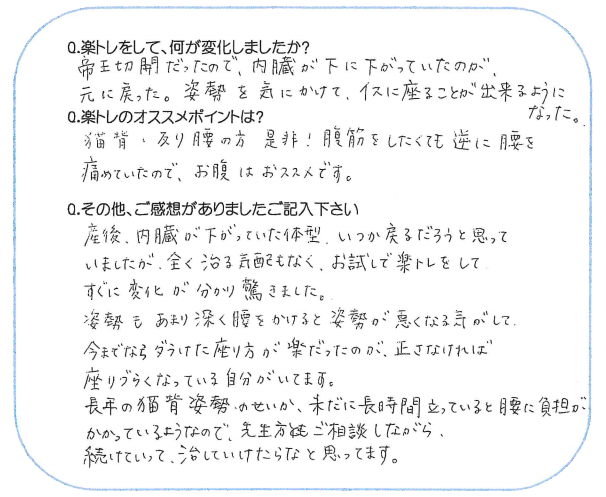 Q.楽トレをして、何が変化しましたか?
帝王切開だったので、内臓が下に下がっていたのが、
元に戻った。姿勢を気にかけて、イスに座ることが出来るように
なった。
Q.楽トレのオススメポイントは?
猫背・反り腰の方 是非!腹筋をしたくても逆に腰を
痛めていたので、お腹はおススメです。
Q.その他、ご感想がありましたご記入下さい
産後、内臓が下がっていた体型、いつか戻るだろうと思って
いましたが、全く治る気配もなく、お試しで楽トレをして、
すぐに変化が分かり驚きました。
姿勢もあまり深く腰をかけると姿勢が悪くなる気がして、
今までならダラけた座り方が楽だったのが、正さなければ
座りづらくなっている自分がいてます。
長年の猫背姿勢のせいか、未だに長時間立っていると腰に負担が
かかっているようなので、先生方にもご相談しながら、
続けていって、治していけたらなと思ってます。